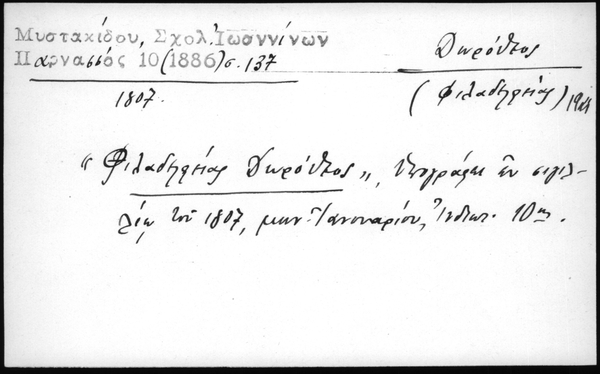 Μυστακίδου, Σχολ. Ἰωαννίνων
Παρνασσός 10 (1886) σ. 137
Δωρόθεος
(Φιλαδελφείας)
1807.
"Φιλαδελφείας Δωρόθεος", ὑπογράφει ἐν σιγιλ-
λίῳ τοῦ 1807, μην. Ἰανουαρίου, Ἰνδικτ. 10ης.